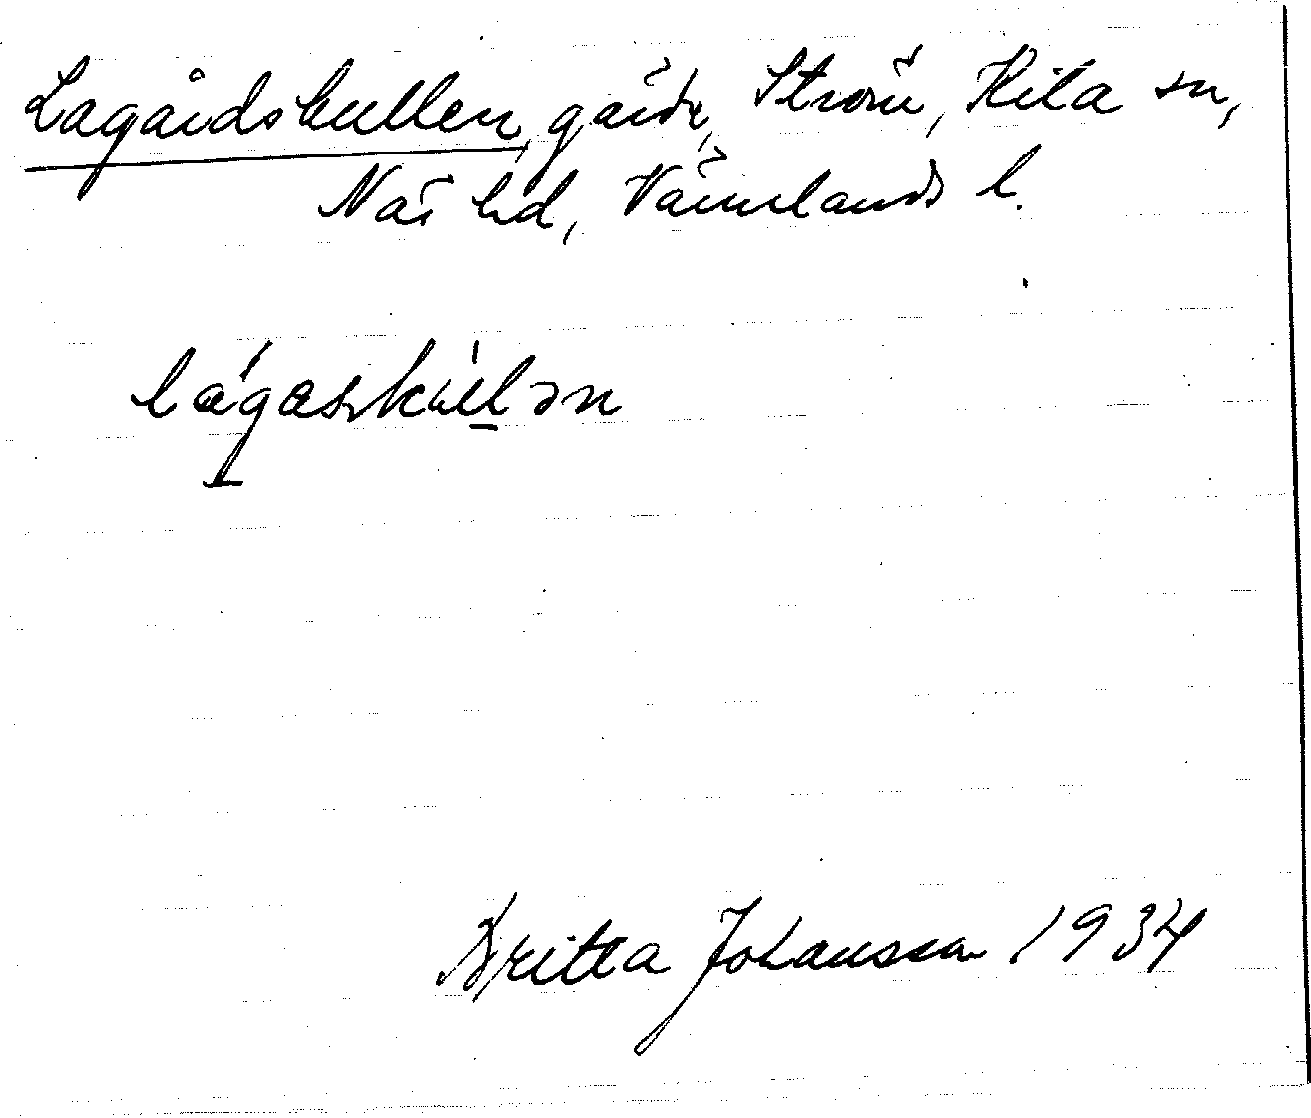 Lagårdskullen, gård, Ström, Kila sn,
Näs hd, Värmlands l.
lágaskúlən
Britta Johansson 1934